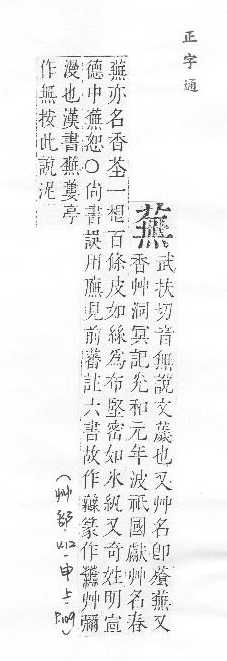 正字通
蕪
武扶切音無說文薉也又艸名卽蘼蕪又
香艸洞冥記光和元年波祗國獻艸名春
蕪亦名香荃一根百條皮如絲爲布堅密如氷紈又奇姓明宣
德中蕪恕○尚書誤用廡見前蕃註六書故作篆作艸彌
漫也漢書蕪蔞亭
作無按此說泥
(艸部·U12·申上·P.109)